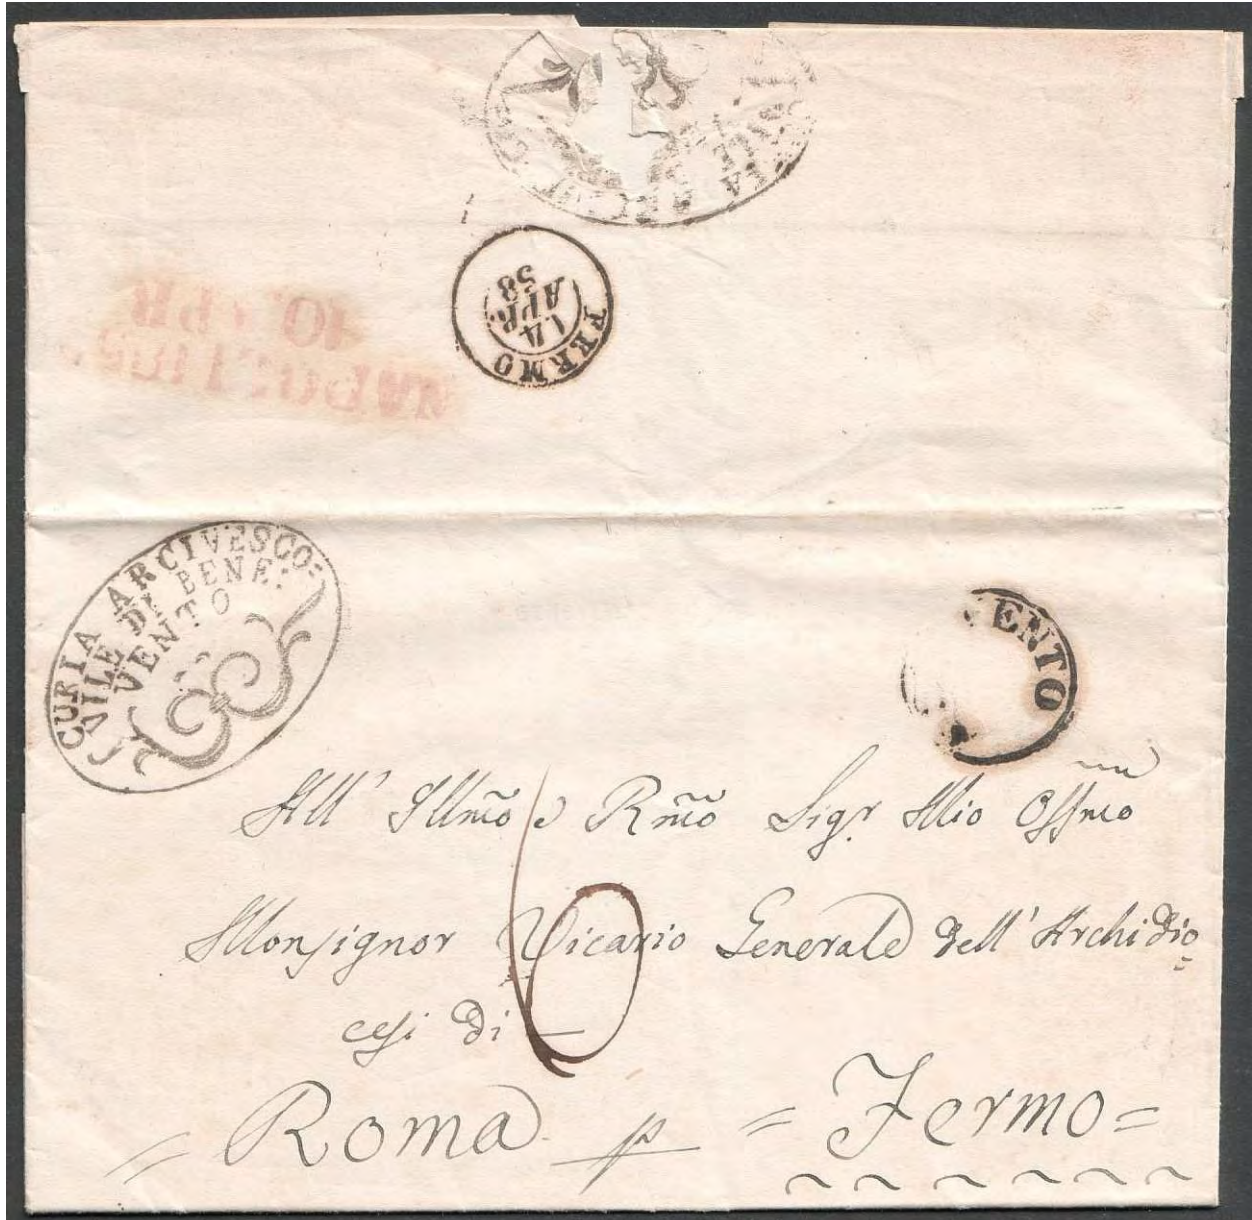 FERMO
14
APR
58
10 APR
CURIA ARCIVESCO=
VILE DI BENE:
VENTO
VENTO
All' Illmo e Rmo Sigr Mio Ossmo
Monsignor Vicario Generale dell' Archidio=
cesi di
6
= Roma p = Fermo =